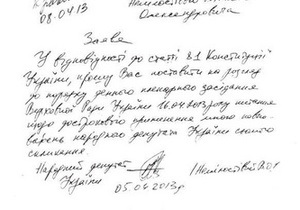 08.04.13
Олександровича
Заява
У відповідності до статті 81 Конституції
України, прошу Вас поставити на розгляд
до порядку денного пленарного засідання
Верховної Ради України 16.04 питання
щодо дострокового припинення мною повно-
важень народного депутата України
скликання.
Народний депутат
України
05.04.2013р.